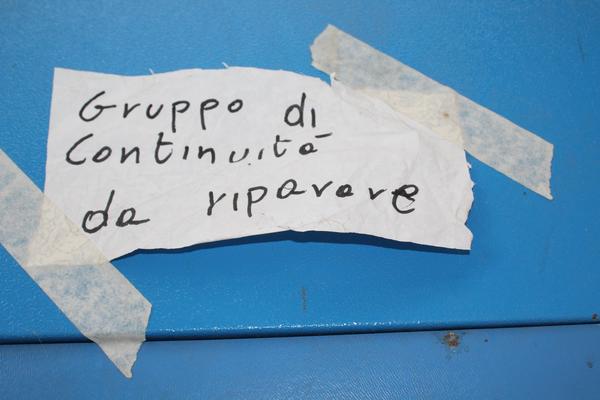 Gruppo di
Continuità
da riparare